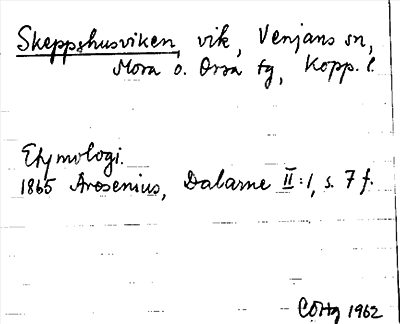 Skeppshusviken, vik, Venjans sn,
Mora o. Orsa tg, Kopp. l.
Etymologi.
1865 Arosenius, Dalarne II:1, s. 7 f.
COHg 1962